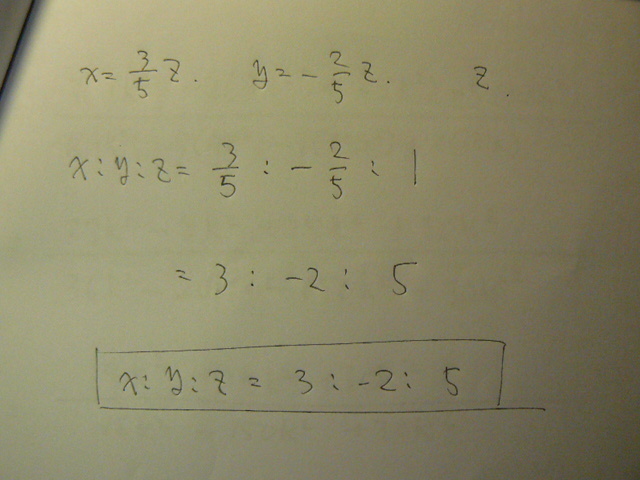 x = 3/5 z. y = - 2/5 z. z.
x : y : z = 3/5 : - 2/5 : 1
= 3 : -2 : 5
x : y : z = 3 : -2 : 5